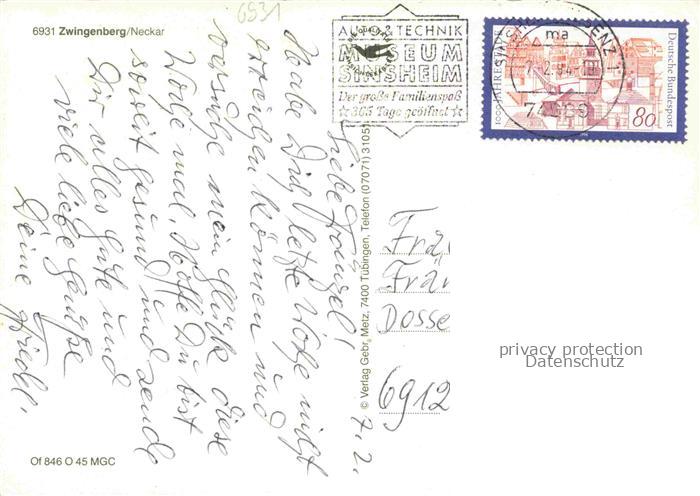 6931
6931 Zwingenberg/Neckar
AUTO & TECHNIK
MUSEUM
SINSHEIM
Der große Familienspaß
☆ 365 Tage geöffnet ☆
Deutsche Bundespost
80
7.2.
Liebe
Habe Dich letzte Woche nicht
erreichen können und
versuche mein Glück diese
Woche mal. Hoffe Du bist
soweit gesund und sende
Dir alles Gute und
viele liebe Grüße
Deine Friedel.
© Verlag Gebr. Metz, 7400 Tübingen, Telefon (07071) 31051
Frä
Frä
Dosse
6912
privacy protection
Datenschutz
Of 846 O 45 MGC